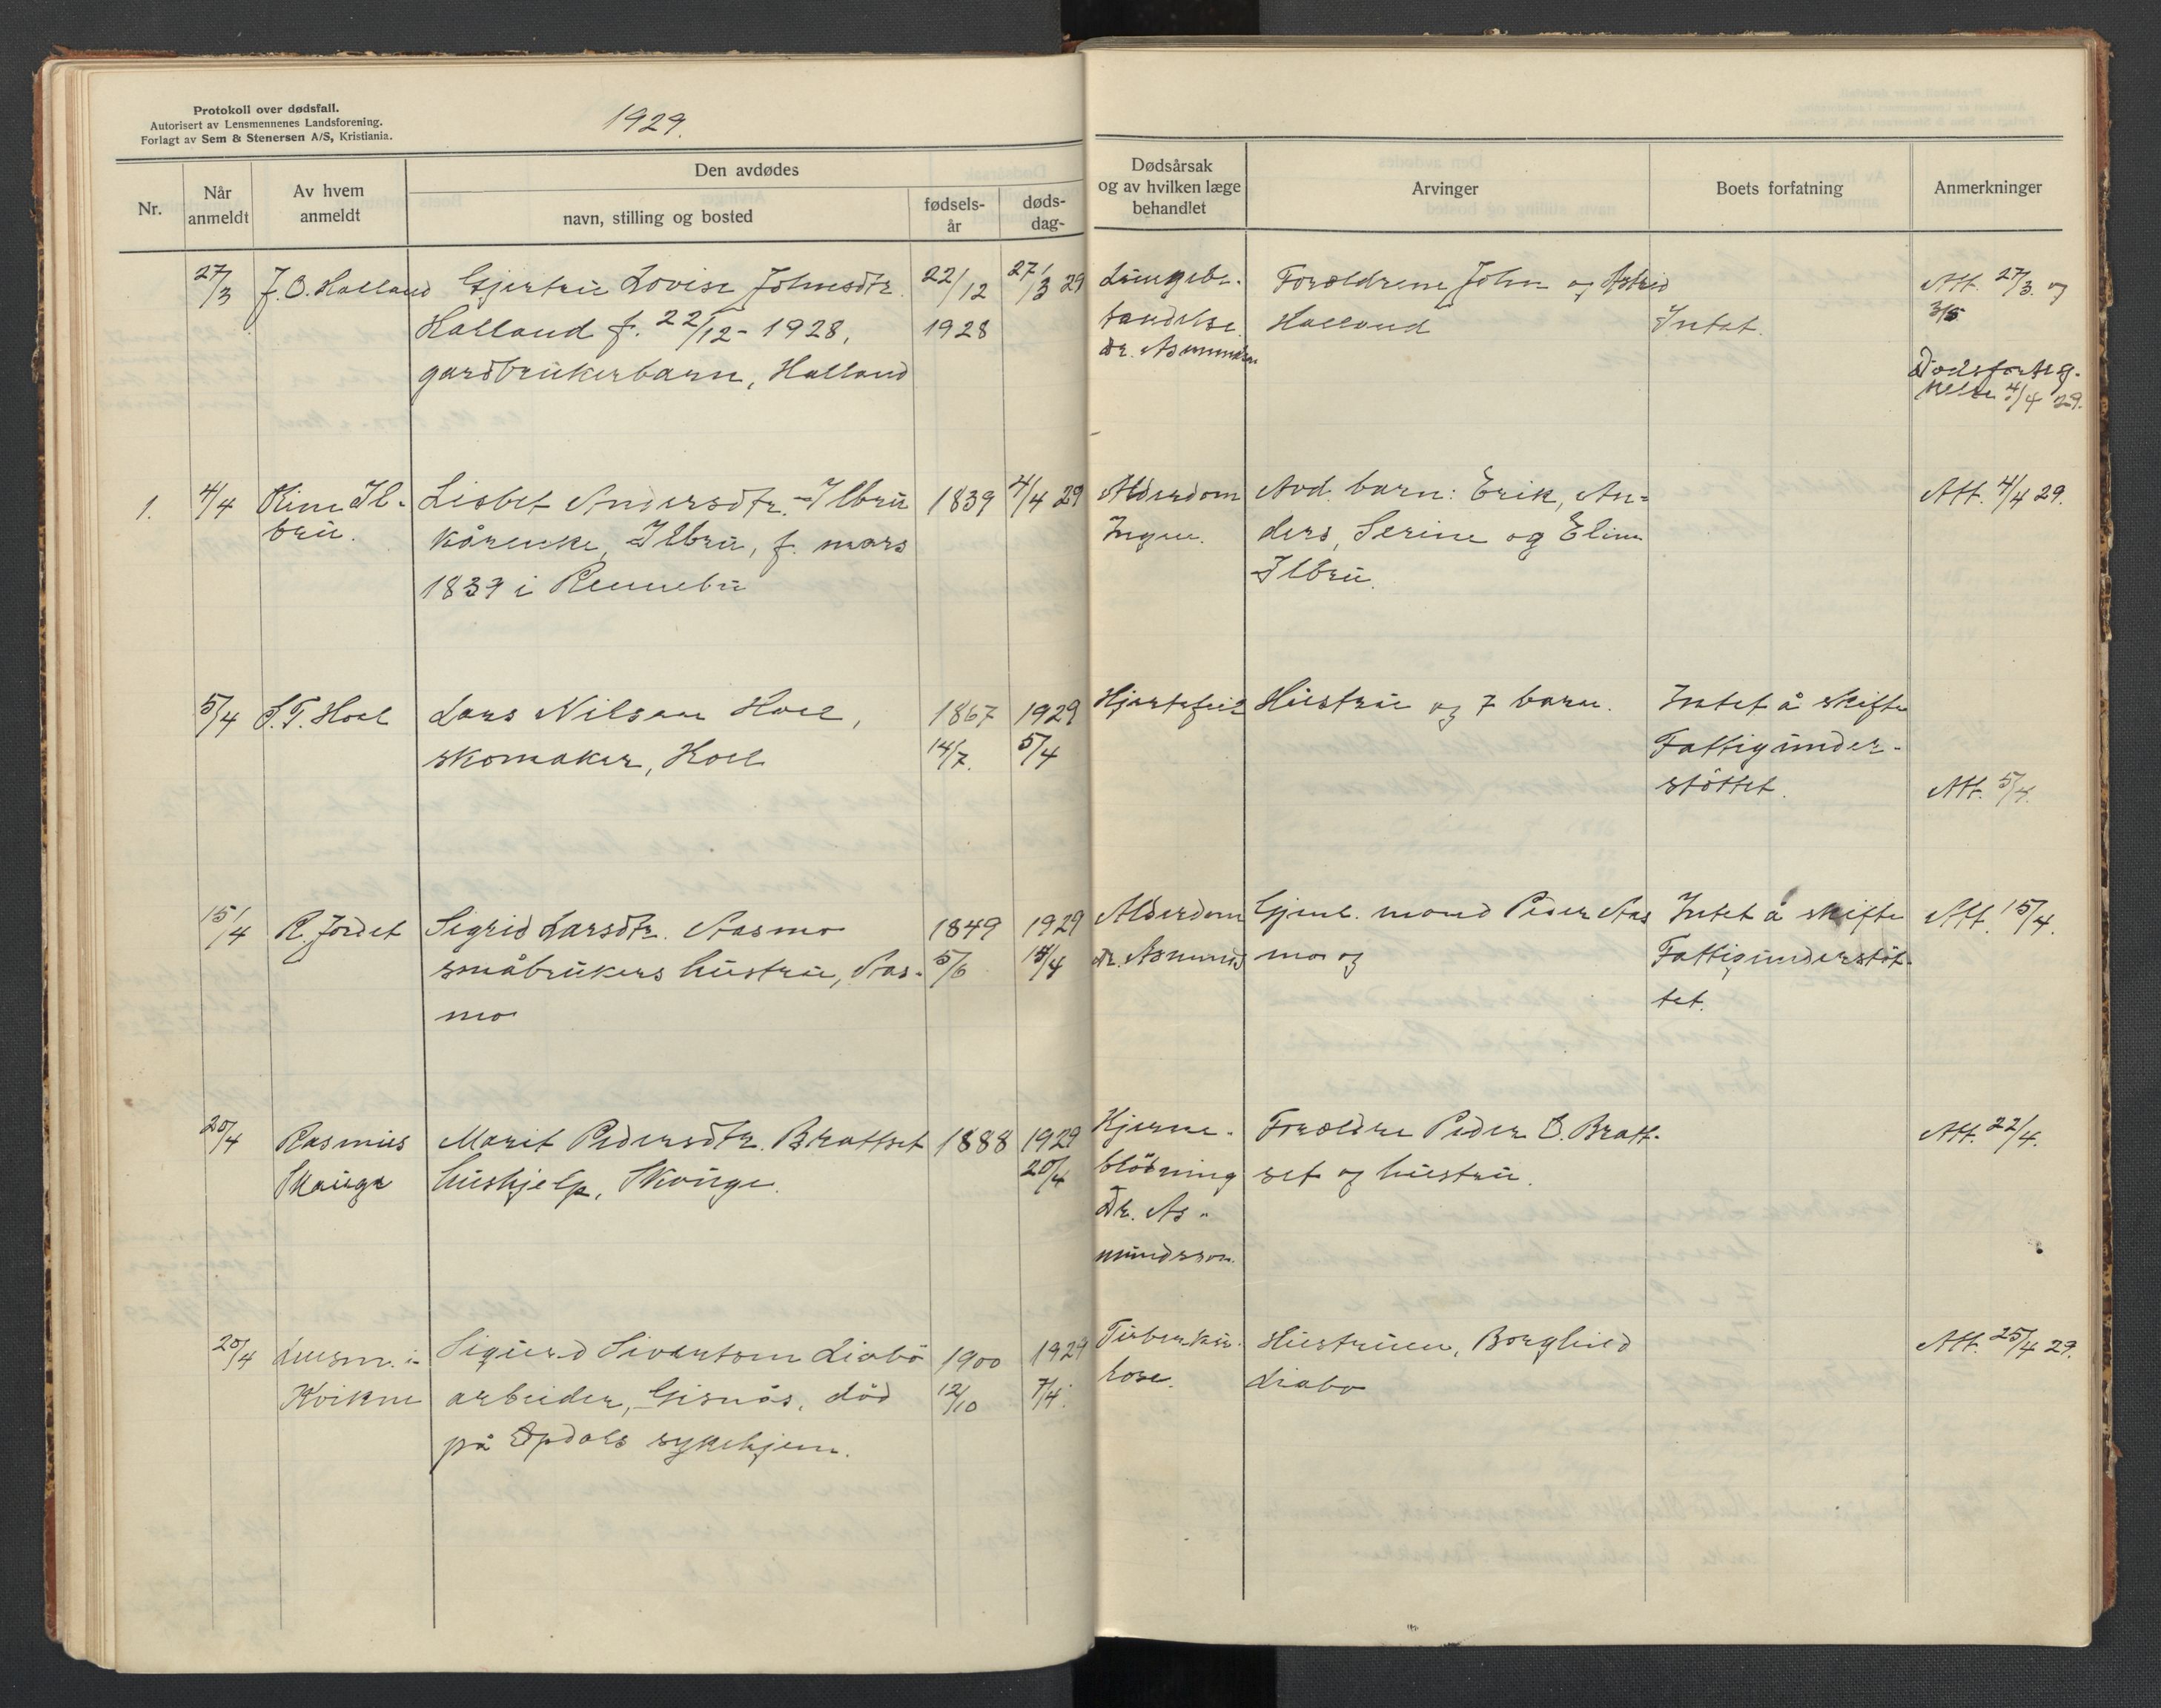 Protokoll over dødsfall.
Autorisert av Lensmennenes Landsforening.
Forlagt av Sem & Stenersen A/S, Kristiania.
1929.
Nr.
Når anmeldt
Av hvem anmeldt
Den avdødes
navn, stilling og bosted
fødsels-år
døds-dag-
Dødsårsak
og av hvilken læge
behandlet
Arvinger
Boets forfatning
Anmerkninger
27/3 J. O. Halland Gjertru Lovise Johnsdtr. 22/12 27/3 29 Lungebe- Forældrene John og Astrid Att. 27/3. og
Halland f. 22/12 - 1928, 1928 tændelse Halland Intet. 3/5
gardbrukerbarn, Halland Dr. Asmundson Dødsforteg-
nelse 4/4 29.
1. 4/4 Kine Il- Lisbet Andersdtr. Ilbru 1839 4/4 29 Alderdom Avd. barn: Erik, An- Att. 4/4 29.
bru. kårenke, Ilbru, f. mars Ingen. ders, Serine og Eline
1839 i Rennebu Ilbru.
5/4 S. T. Hoel Lars Nilsen Hoel, 1867 1929 Hjertefeil Hustru og 7 barn. Intet å skifte
skomaker, Hoel 14/7. 5/4 Fattigunder-
støttet. Att. 5/4.
15/4 R. Jordet Sigrid Larsdtr. Aasmo 1849 1929 Alderdom Gjenl. mand Peder Aas Intet å skifte Att. 15/4.
småbrukers hustru, Aas- 5/6 14/4 Dr. Asmunds mo og Fattigunderstøt-
mo tet.
20/4 Rasmus Marit Pedersdtr. Brattset 1888 1929 Hjerne- Forældre Peder O. Bratt- Att. 22/4.
Skauge hushjelp, Skauge. 20/4 blødning set og hustru.
Dr. As-
mundsson.
20/4 Lensm. i Sigurd Sivertsen Liabø 1900 1929 Tuberku- Hustruen, Borghild Att. 25/4 29.
Kvikne arbeider, Gisnås, død 12/10 7/4. lose. Liabø
på Opdals sykehjem.